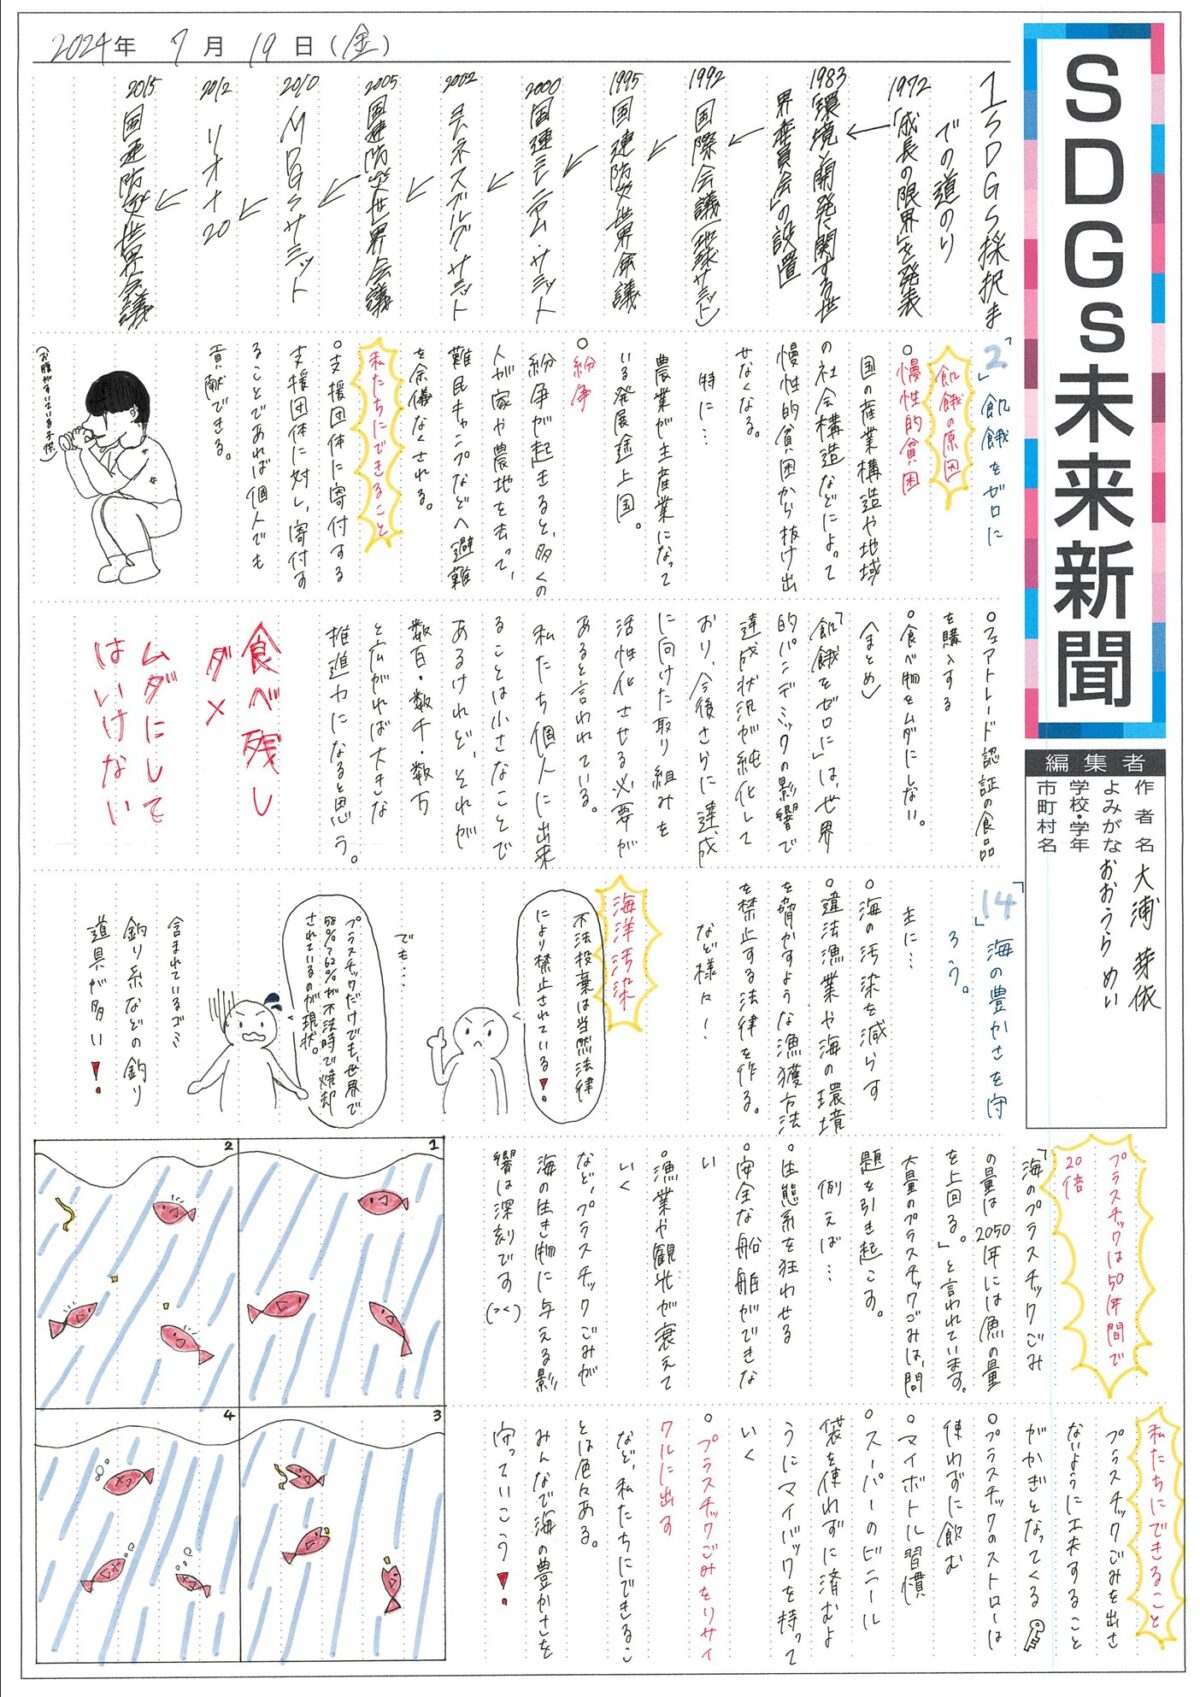 2024年 7月 19日(金)
SDGs未来新聞
編集者
作者名 大浦 芽依
よみがな おおうら めい
学校・学年
市町村名
1 SDGs採択ま
での道のり
1972「成長の限界」を発表
1983「環境と開発に関する世
界委員会」の設置
1992 国際会議(地球サミット)
1995 国連防災世界会議
2000 国連ミレニアム・サミット
2002 ヨハネスブルグ・サミット
2005 国連防災世界会議
2010 MDGsサミット
2012 リオ+20
2015 国連防災世界会議
2「飢餓をゼロに」
飢餓の原因
○慢性的貧困
国の産業構造や地域
の社会構造などによって
慢性的貧困から抜け出
せなくなる。
特に…
農業が主産業になって
いる発展途上国。
○紛争
紛争が起きると、多くの
人が家や農地を去って、
難民キャンプなどへ避難
を余儀なくされる。
私たちにできること
○支援団体に寄付する
支援団体に対し、寄付す
ることであれば個人でも
貢献できる。
(お腹がすいている子供)
○フェアトレード認証の食品
を購入する
○食べ物をムダにしない。
(まとめ)
「飢餓をゼロに」は、世界
的パンデミックの影響で
達成状況が純化して
おり、今後さらに達成
に向けた取り組みを
活性化させる必要が
あると言われている。
私たち個人に出来
ることは小さなことで
あるけれど、それが
数百・数千・数万
と広がれば大きな
推進力になると思う。
食べ残し
ダメ
ムダにして
はいけない
14「海の豊かさを守
ろう。」
主に…
○海の汚染を減らす
○違法漁業や海の環境
を脅かすような漁獲方法
を禁止する法律を作る。
など様々!
海洋汚染
不法投棄は当然法律
により禁止されている!
でも…
プラスチックだけでも、世界で
58%〜62%が不法時で焼却
されているのが現状。
含まれているゴミ…
釣り糸などの釣り
道具が多い!
プラスチックは50年間で
20倍
「海のプラスチックごみ
の量は2050年には魚の量
を上回る。」と言われています。
大量のプラスチックごみは、問
題を引き起こす。
例えば…
○生態系を狂わせる
○安全な船舶ができな
い
○漁業や観光が衰えて
いく
など、プラスチックごみが
海の生き物に与える影
響は深刻です(>_<)
私たちにできること
プラスチックごみを出さ
ないように工夫すること
がかぎとなってくる
○プラスチックのストローは
使わずに飲む
○マイボトル習慣
○スーパーのビニール
袋を使わずに済むよ
うにマイバックを持って
いく
○プラスチックごみをリサイ
クルに出す
など、私たちにできるこ
とは色々ある。
みんなで海の豊かさを
守っていこう!
1
2
3
4